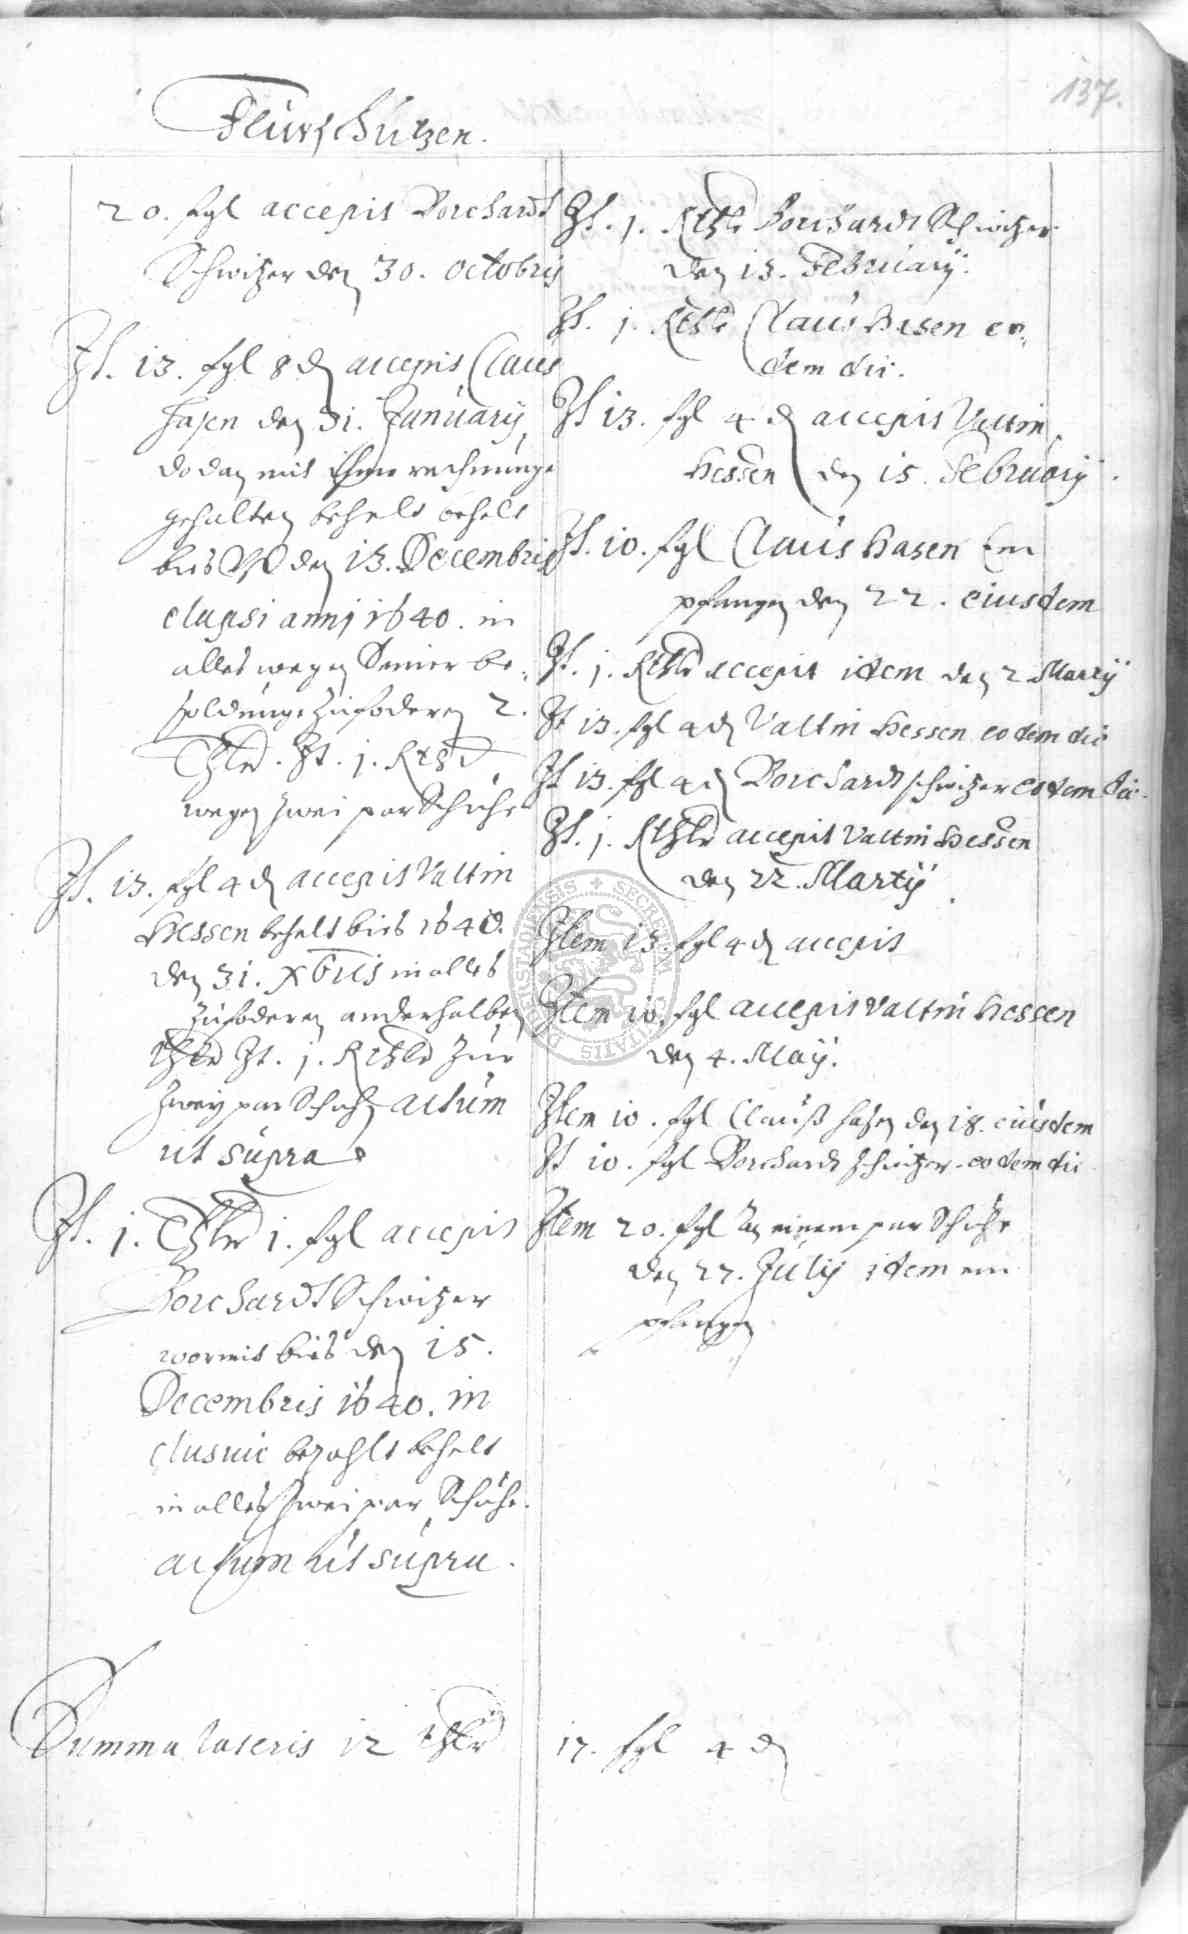 137.
Flurschützen.
20. fgl accepit Borchardt
Schwitzer den 30. octobris
It. 13. fgl 8 d accepit Claus
Hasen den 31. January
do dan mit ihme rechnunge
gehalten behelt behelt
bis den 13. Decembris
elapsi anni 1640. in
alles wegen Seiner be-
soldunge zufoderen 2.
Thlr. It. 1. Rthlr
wegen zwei par Schuhe
It. 13. fgl 4 d accepit Valtin
Hessen behelt bis 1640.
den 31. Xbris in alles
zufoderen anderhalben
thlr It. 1. Rthlr zur
zwey par Schuh actum
ut supra
It. 1. Thlr 1. fgl accepit
Borchardt Schwitzer
wormit bis den 15.
Decembris 1640. in
clusive bezahlt behelt
in alles zwei par Schuhe.
actum ut supra.
It. 1. Rthlr Borchardt Schwitzer
den 13. February.
It. 1. Rthlr Claus Hasen eo-
dem die.
It 13. fgl 4 d accepit Valtin
Hessen den 15. February.
It. 10. fgl Claus Hasen Em
pfangen den 22. eiusdem
It. 1. Rthlr accepit idem den 2 Marty
It 13. fgl 4 d Valtin Hessen eodem die
It 13. fgl 4 d Borchardt schwitzer eodem die.
It. 1. Rthlr accepit Valtin Hessen
den 22. Marty.
Item 13. fgl 4 d accepit
Item 10. fgl accepit Valtin Hessen
den 4. May.
Item 10. fgl Clauß hasen den 18. eiusdem
It 10. fgl Borchardt schwitzer eodem die
Item 20. fgl zu einem par Schuhe
den 27. July idem em
pfangen
Summa lateris 12 thlr 17. fgl 4 d
SECRETUM CIVITATIS